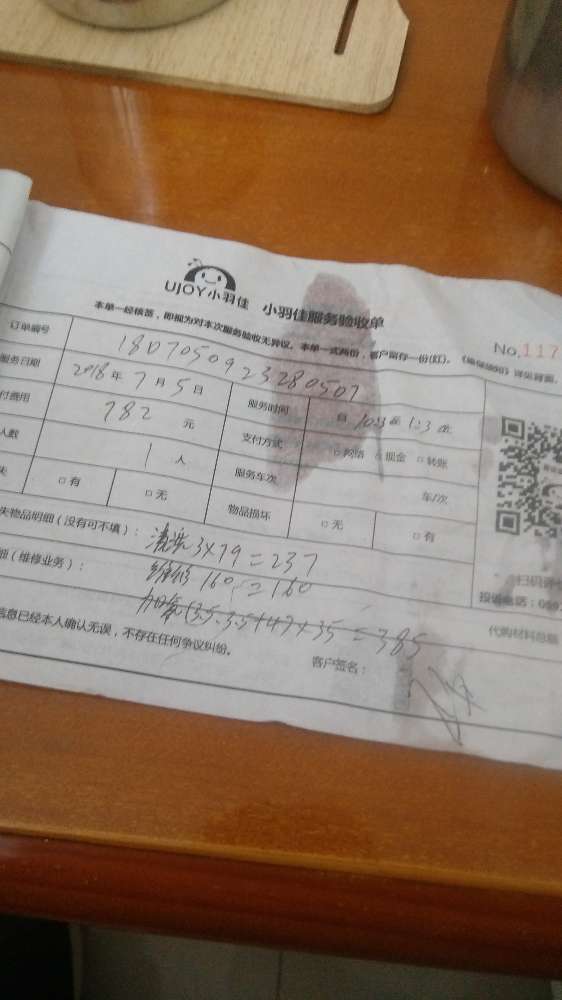 UJOY小羽佳 小羽佳服务验收单
本单一经核签，即视为对本次服务验收无异议。本单一式两份，客户留存一份(红)。
No.117
订单编号 180705092328050
服务日期 2018年7月5日 服务时间 自 至
付费用 782 元 支付方式 □网络 □现金 □转账
人数 1 人 服务车次 车/次
失 □有 □无 物品损坏 □无 □有
失物品明细（没有可不填）： 清洗 3×79=237
细（维修业务）： 维修 160 =160
=385
信息已经本人确认无误，不存在任何争议纠纷。
客户签名：
代购材料总额